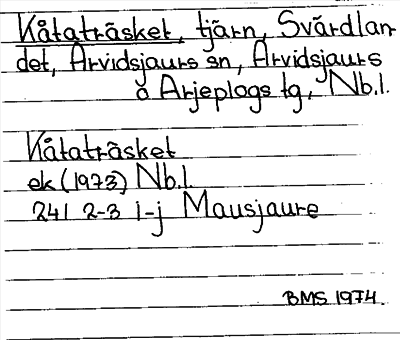 Kåtaträsket, tjärn, Svärdlan-
det, Arvidsjaurs sn, Arvidsjaurs
o Arjeplogs tg, Nb.l.
Kåtaträsket
ek (1973) Nb.l.
24I 2-3 i-j Mausjaure
BMS 1974.